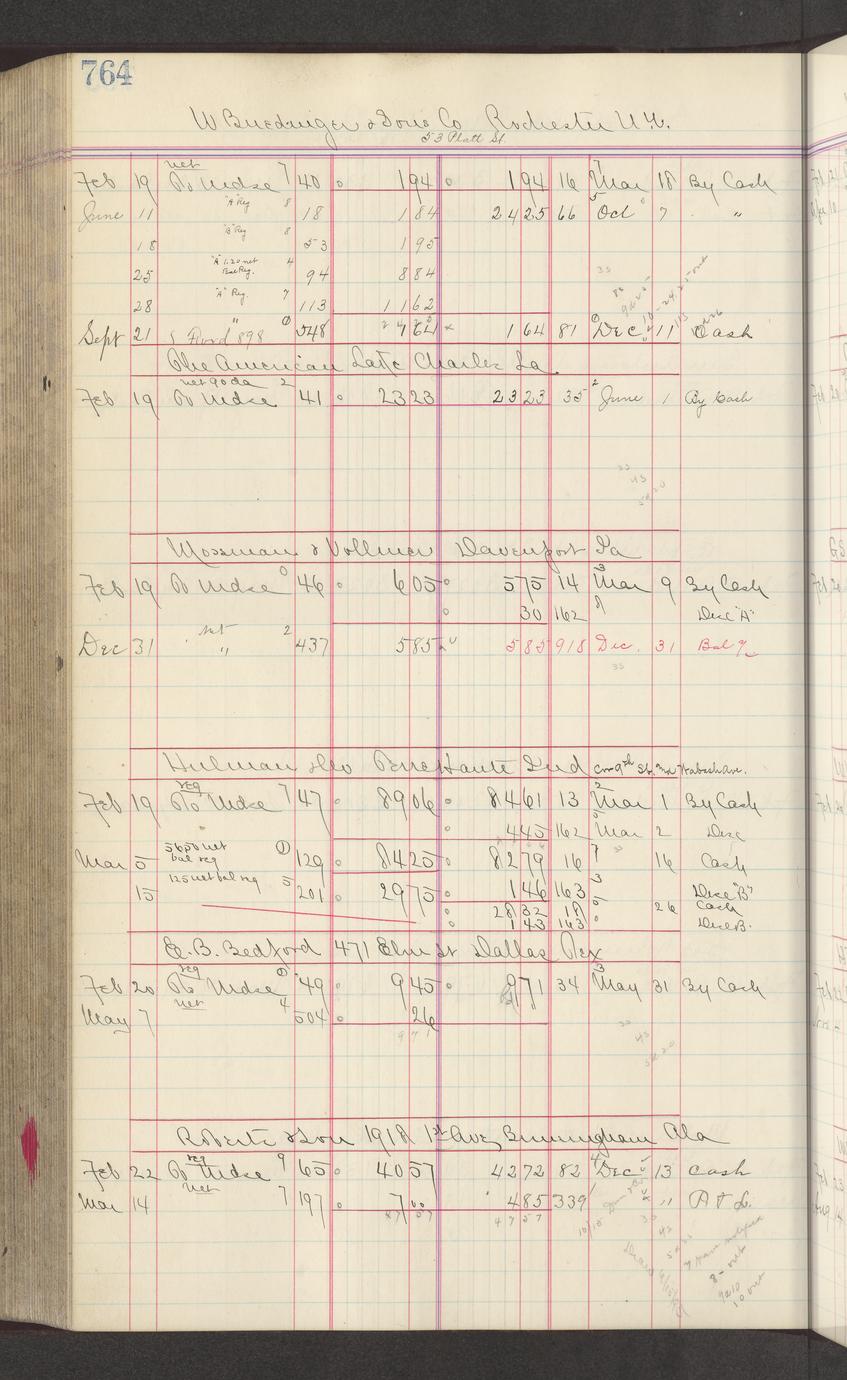 764
W Buedinger & Sons Co Rochester N.Y.
53 Platt St
net
Feb 19 To Mdse 7 40 194 194 16 Mar 18 By Cash
June 11 "A" Reg 8 18 184 2425 66 Oct 7 "
18 "B" Reg 8 53 195
25 "A" 1.20 net Bal Reg. 4 94 884
28 "A" Reg. 7 113 1162
Sept 21 " 898 548 164 164 81 Dec 11 Cash
The American Lake Charles La.
net 90 da 2
Feb 19 To Mdse 41 2323 2323 35 June 1 By Cash
Mossman & Vollmer Davenport Ia
Feb 19 To Mdse 0 46 605 575 14 Mar 9 By Cash
30 162 Disc "A"
net 2
Dec 31 " 437 585 585 918 Dec. 31 Bal %
Hulman & Co Terre Haute Ind Cor 9th St. and Wabash Ave.
reg
Feb 19 To Mdse 7 47 8906 8461 13 Mar 1 By Cash
445 162 Mar 2 Disc
Mar 5 5650 net bal reg 129 8425 8279 16 7 16 Cash
15 125 net bal reg 5 201 2975 146 163 3 Disc "B"
2832 18 26 Cash
143 163 Disc B.
E. B. Bedford 471 Elm St Dallas Tex
reg
Feb 20 To Mdse 49 945 971 34 May 31 By Cash
May 7 net 4 504 26
971
Roberts & Son 1918 1st Ave, Birmingham Ala
reg
Feb 22 To Mdse 9 65 4057 4272 82 Dec 13 Cash
Mar 14 net 7 197 700 485 339 " " P & L.
4757
10 out